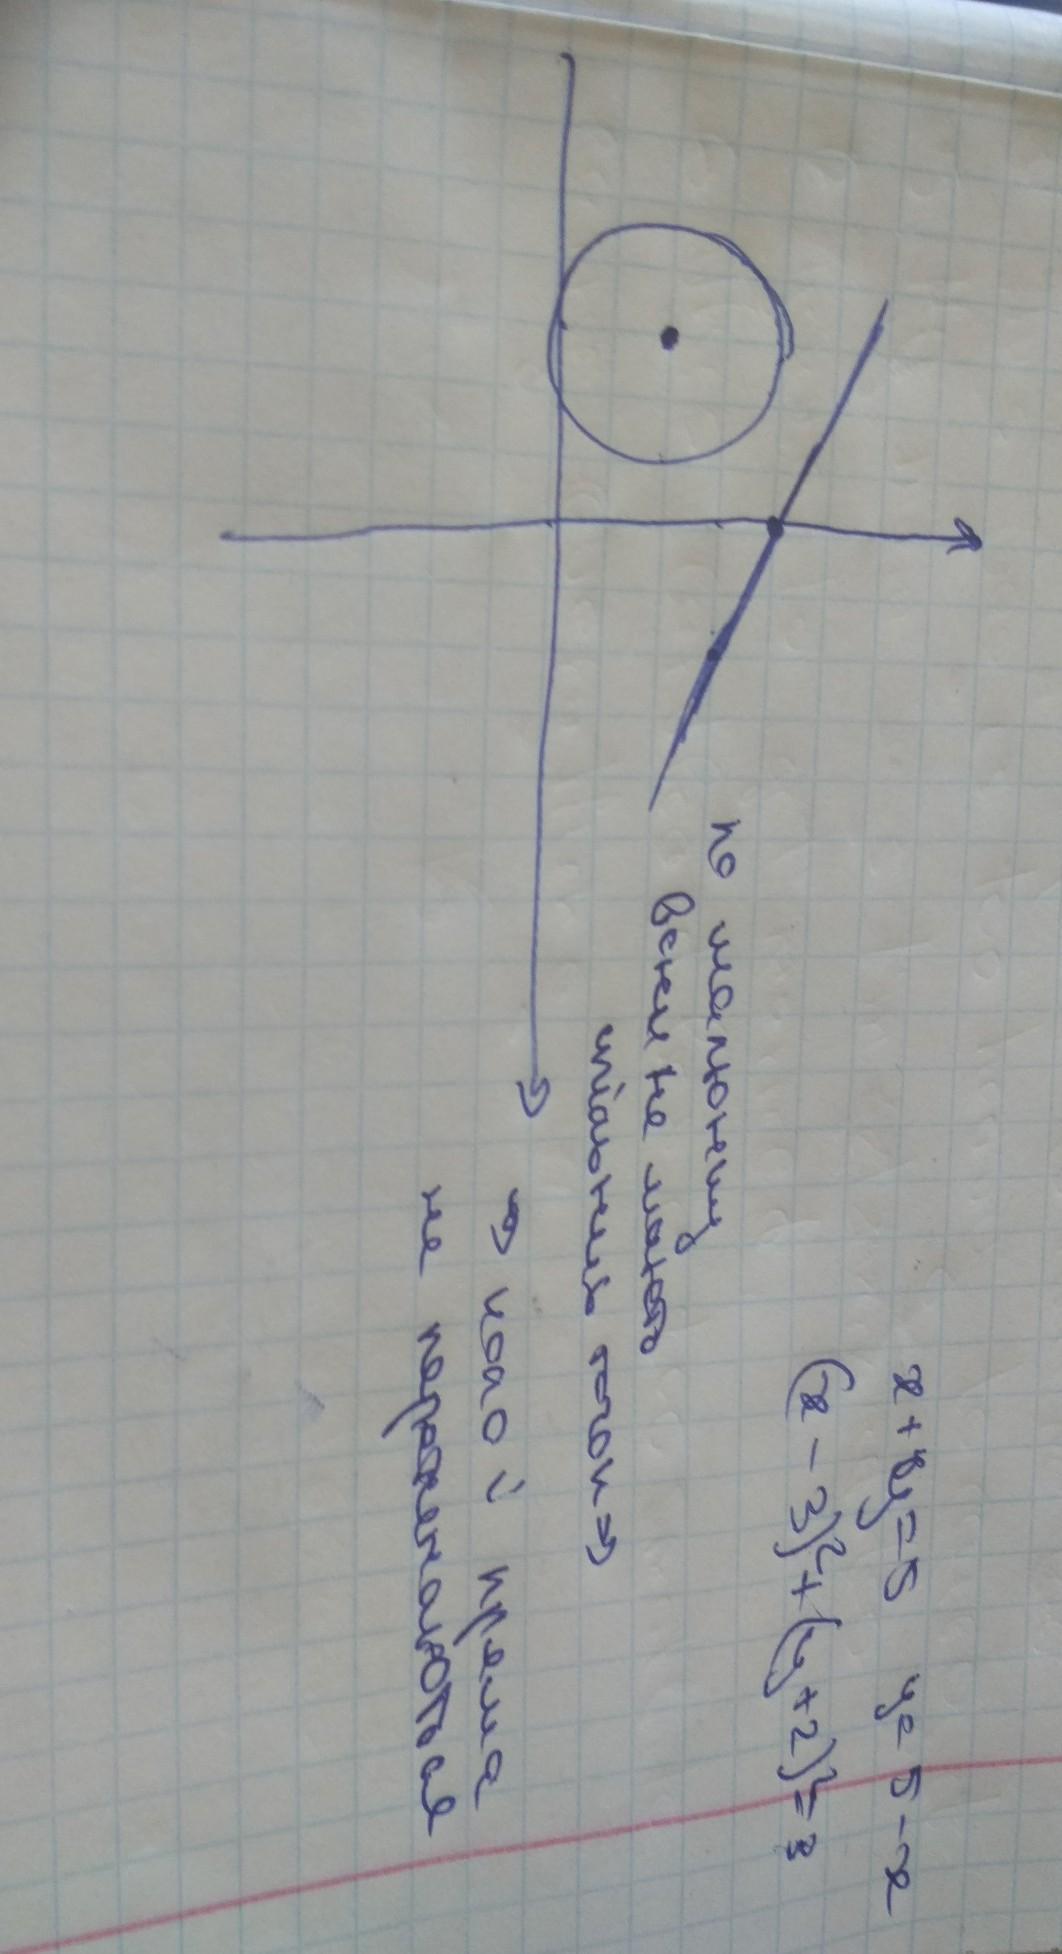 x + y = 5 y = 5 - x
(x - 3)² + (y + 2)² = 3
по малюнку
вони не мають
спільних точок ⇒
⇒ коло і пряма
не перетинаються